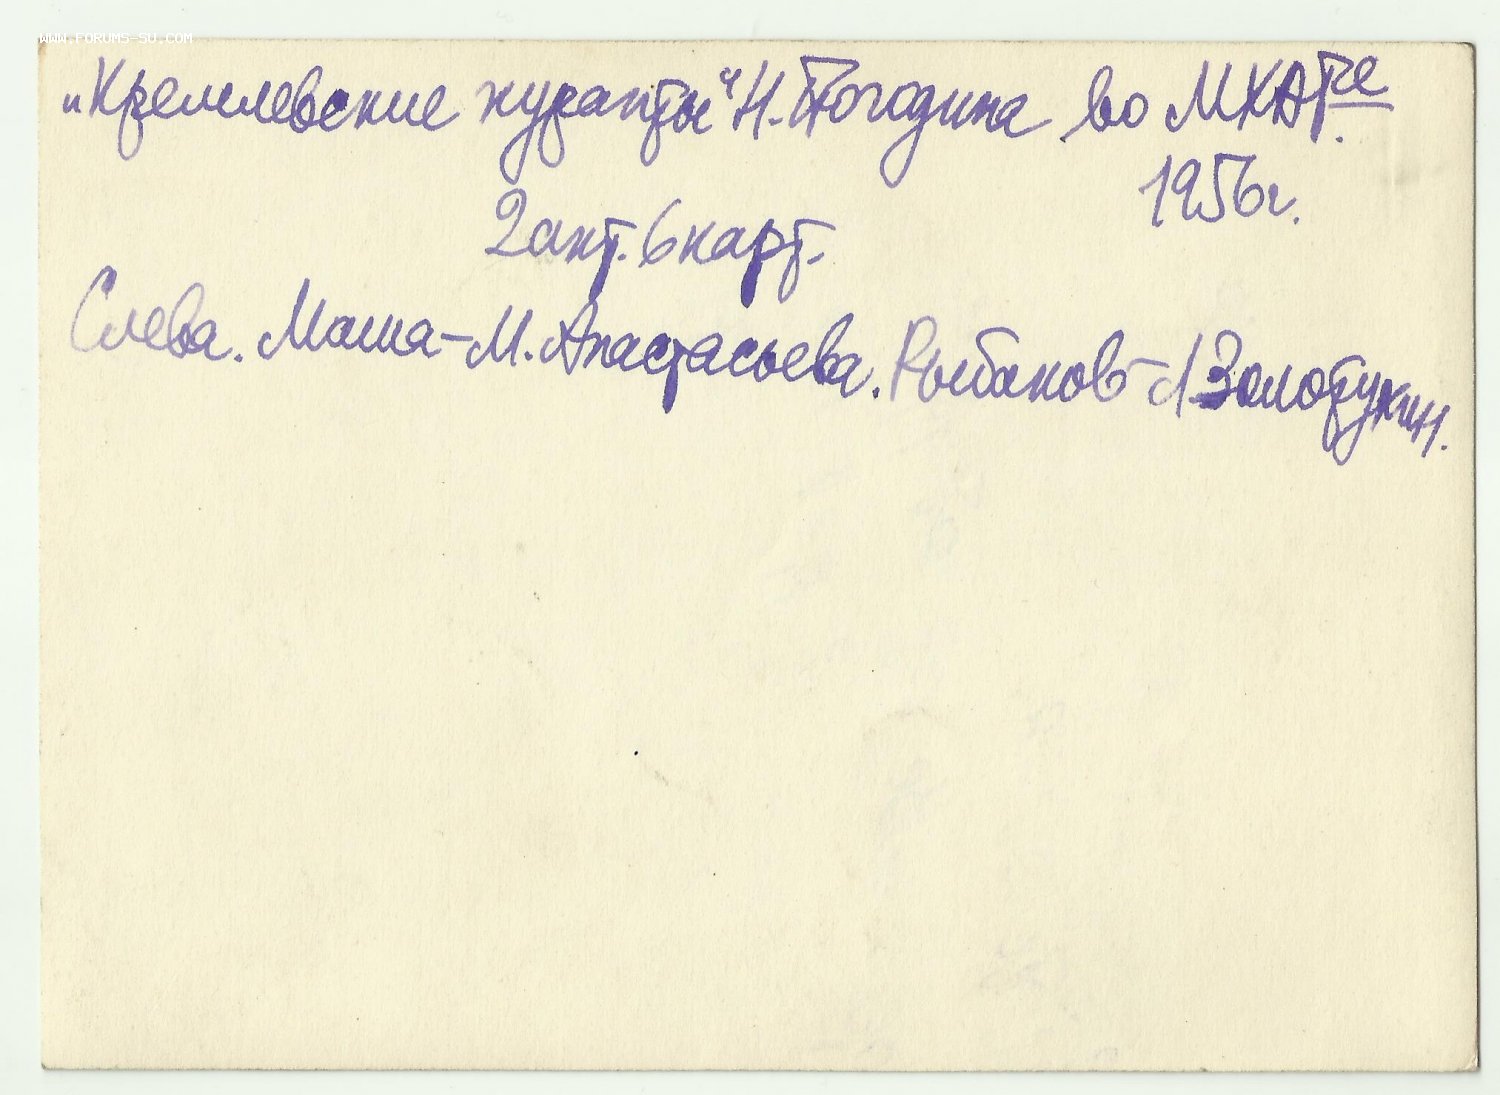 WWW.FORUMS-SU.COM
„Кремлевские куранты" Н. Погодина во МХАТе.
1956г.
2 акт. 6 карт.
Слева. Маша – М. Анастасьева. Рыбаков – Л. Золотухин.